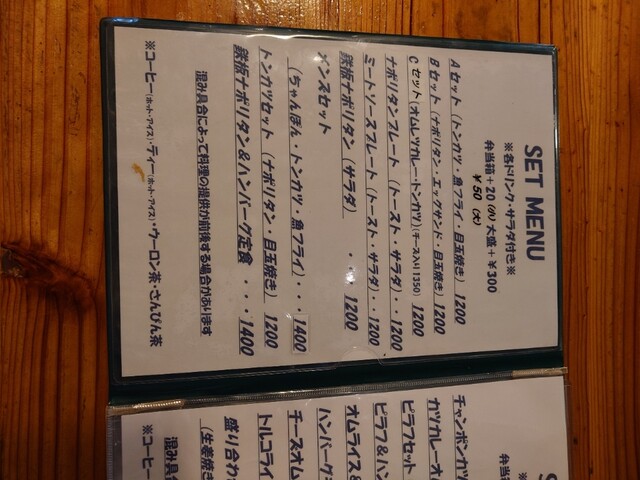 SET MENU
※各ドリンク・サラダ付き※
弁当箱+20(小) 大盛+¥300
¥50(大)
Aセット(トンカツ・魚フライ・目玉焼き) 1200
Bセット(ナポリタン・エッグサンド・目玉焼き) 1200
Cセット(オムレツカレー・トンカツ)(チーズ入り1350) 1200
ナポリタンプレート(トースト・サラダ)・・1200
ミートソースプレート(トースト・サラダ)・・1200
鉄板ナポリタン(サラダ) ・・1200
メンズセット
(ちゃんぽん・トンカツ・魚フライ)・・・1400
トンカツセット(ナポリタン・目玉焼き) 1200
鉄板ナポリタン&ハンバーグ定食・・・1400
混み具合によって料理の提供が前後する場合があります
※コーヒー(ホット・アイス)・ティー(ホット・アイス)・ウーロン茶・さんぴん茶
弁当
チャンポンカツ
カツカレーオム
ピラフセット
ピラフ&ハン
オムライス&
ハンバーグ
チーズオム
トルコライ
盛り合わ
(生姜焼き
混み具合
※コーヒー